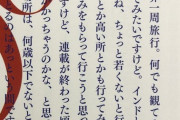 一周旅行。何でも観て
てみたいですけど。インド
ね、ちょっと若くないと行
とか高い所とかも行って
みをもらって行こうと思っ
ですけど、連載が終わった頃
かっちゃうのかな、と思
所は、何歳以下でないと